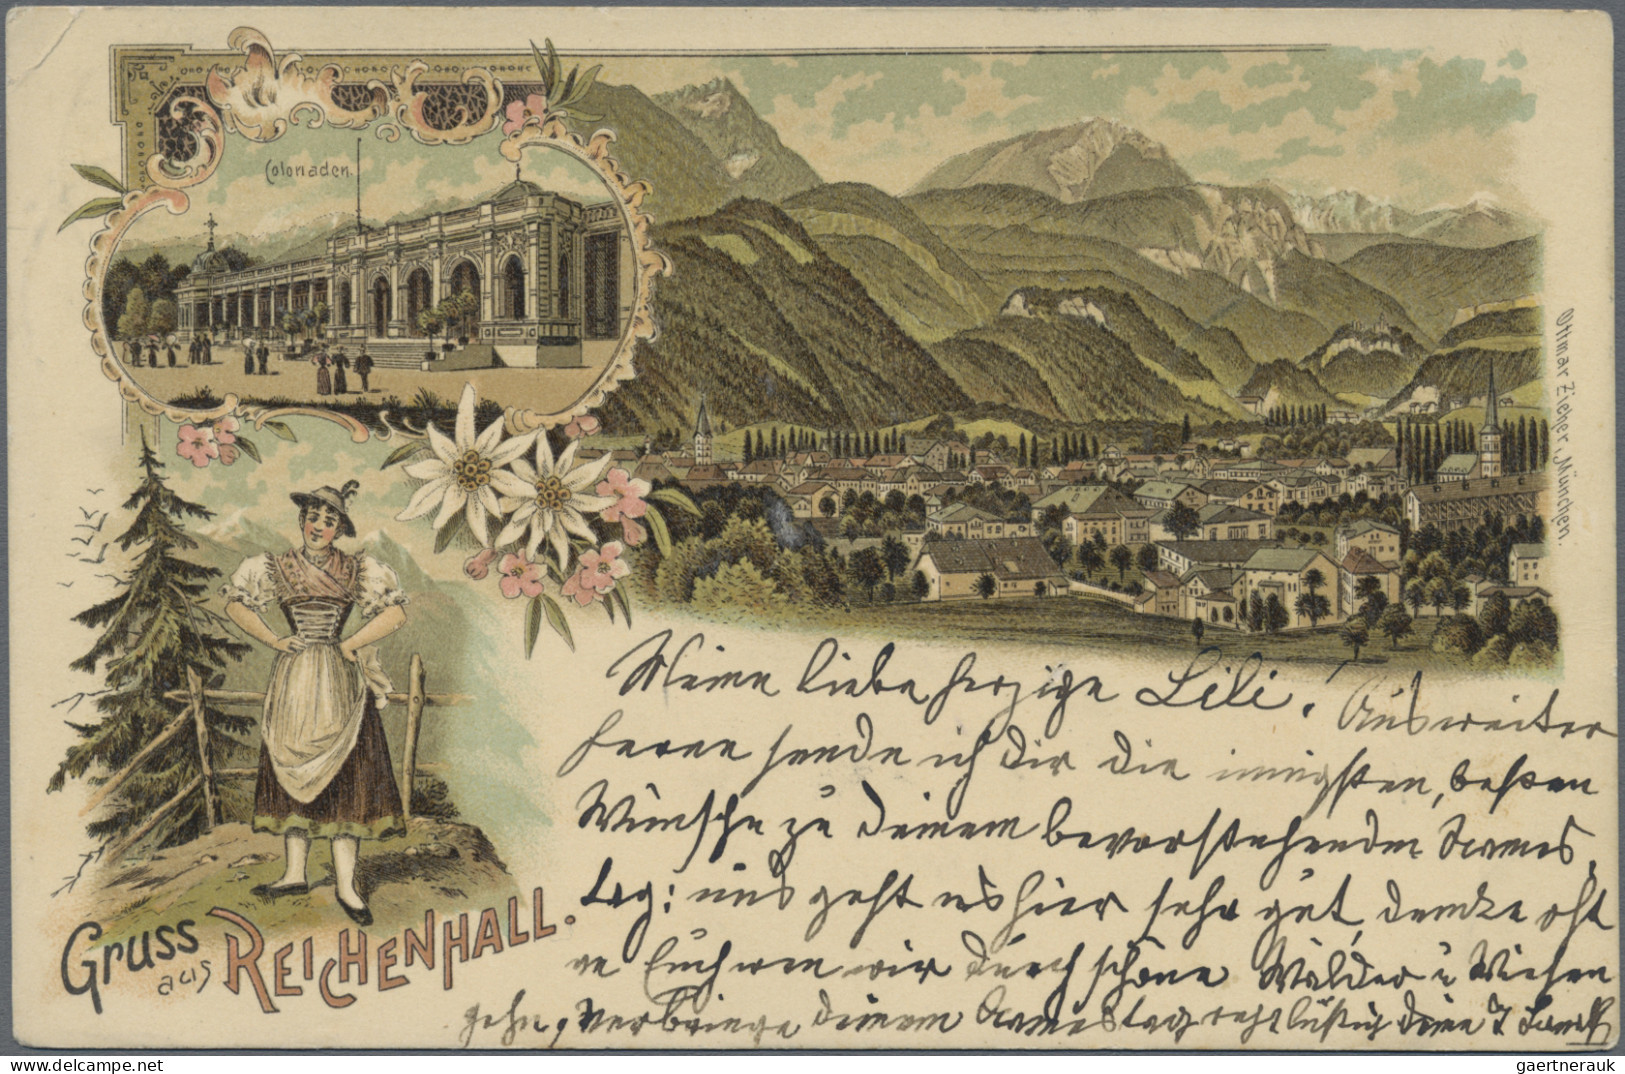 Colonaden.
Ottmar Zieher, München.
Gruss
aus REICHENHALL.
Meine liebe herzige Lili! Aus weiter
Ferne sende ich dir die innigsten, besten
Wünsche zu deinem bevorstehenden Namens
tag: uns geht es hier sehr gut, denke oft
an Euch wen wir durch schöne Wälder u Wiesen
gehn, verbringe deinen Namenstag recht lustig deine
gaertnerauk